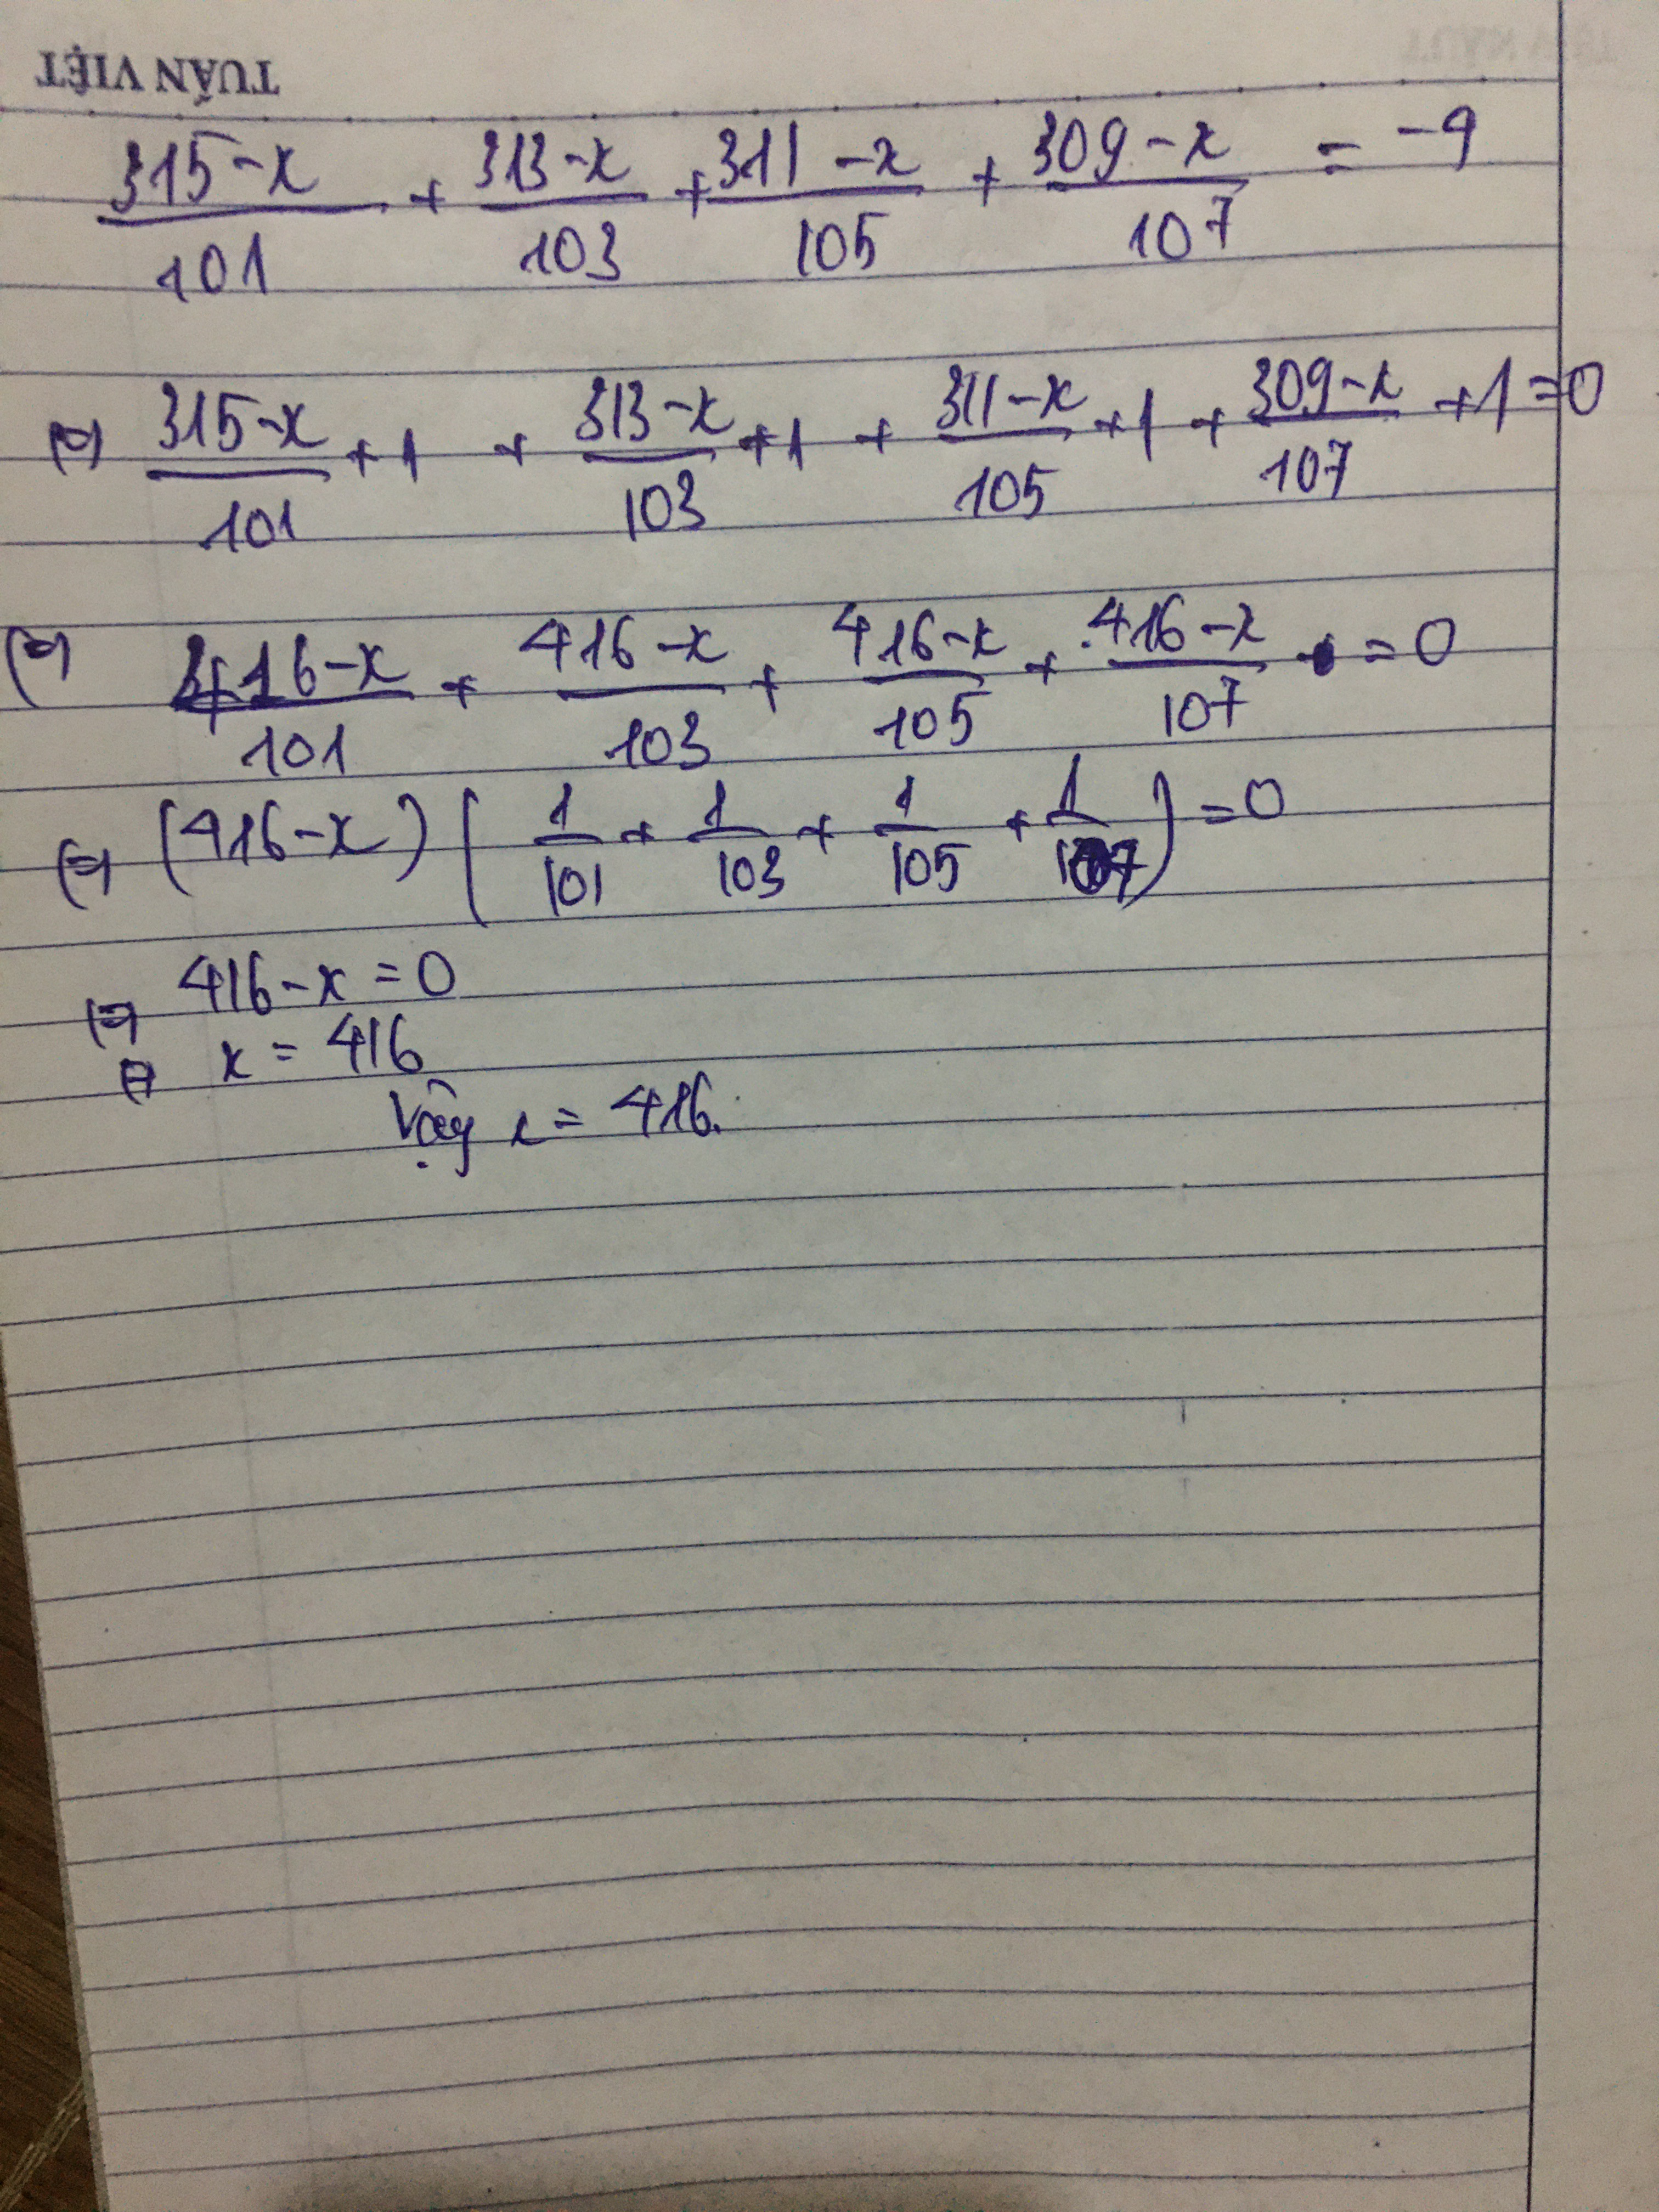 TUẤN VIỆT
315-x/101 + 313-x/103 + 311-x/105 + 309-x/107 = -9
(=) 315-x/101 +1 + 313-x/103 +1 + 311-x/105 +1 + 309-x/107 +1 = 0
(=) 416-x/101 + 416-x/103 + 416-x/105 + 416-x/107 = 0
(=) (416-x) (1/101 + 1/103 + 1/105 + 1/107) = 0
(=) 416-x = 0
(=) x = 416
Vậy x = 416.